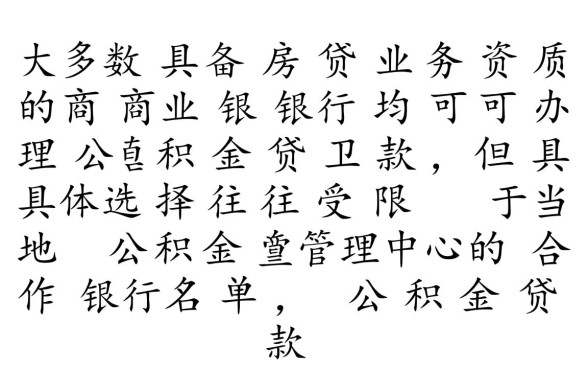 大多数 具备 房 贷 业 务 资 质
的商 商业 银 银行 均 可 可 办
理 公 积 金 贷 卫 款 , 但 具
具体选 择 往 往 受 限 于当
地 公积金 管理中心的 合
作 银行名 单 , 公 积 金 贷
款